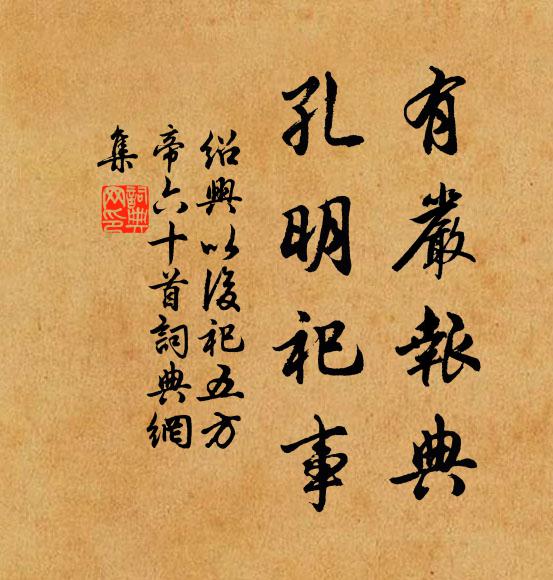 有嚴報典
孔明祀事
紹興以後祀五方
帝六十首詞典網
集
詞典
网印